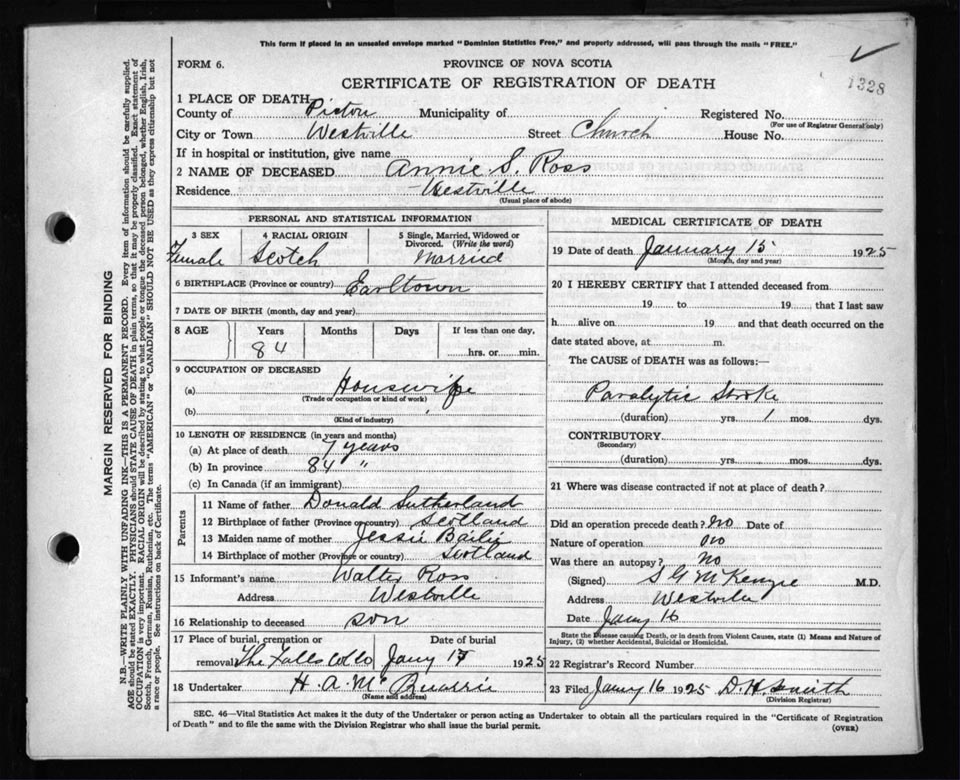 This form if placed in an unsealed envelope marked "Dominion Statistics Free," and properly addressed, will pass through the mails "FREE."
FORM 6.
PROVINCE OF NOVA SCOTIA
CERTIFICATE OF REGISTRATION OF DEATH
1328
1 PLACE OF DEATH
County of Pictou Municipality of Registered No.
(For use of Registrar General only)
City or Town Westville Street Church House No.
If in hospital or institution, give name
2 NAME OF DECEASED Annie S. Ross
Residence Westville
(Usual place of abode)
PERSONAL AND STATISTICAL INFORMATION
3 SEX Female
4 RACIAL ORIGIN Scotch
5 Single, Married, Widowed or Divorced. (Write the word) Married
6 BIRTHPLACE (Province or country) Earltown
7 DATE OF BIRTH (month, day and year)
8 AGE Years Months Days If less than one day,
84 hrs. or min.
9 OCCUPATION OF DECEASED
(a) Housewife
(Trade or occupation or kind of work)
(b)
(Kind of industry)
10 LENGTH OF RESIDENCE (in years and months)
(a) At place of death 7 years
(b) In province 84 "
(c) In Canada (if an immigrant)
Parents
11 Name of father Donald Sutherland
12 Birthplace of father (Province or country) Scotland
13 Maiden name of mother Jessie Bailie
14 Birthplace of mother (Province or country) Scotland
15 Informant's name Walter Ross
Address Westville
16 Relationship to deceased son
17 Place of burial, cremation or removal The Falls Col Co
Date of burial Jany 17 1925
18 Undertaker H. A. McQuarrie
(Name and address)
MEDICAL CERTIFICATE OF DEATH
19 Date of death January 15 1925
(Month, day and year)
20 I HEREBY CERTIFY that I attended deceased from
19 to 19 that I last saw
h alive on 19 and that death occurred on the
date stated above, at m.
The CAUSE of DEATH was as follows:—
Paralytic Stroke
(duration) yrs. 1 mos. dys.
CONTRIBUTORY
(Secondary)
(duration) yrs. mos. dys.
21 Where was disease contracted if not at place of death?
Did an operation precede death? No Date of
Nature of operation no
Was there an autopsy? No
(Signed) S G McKenzie M.D.
Address Westville
Date Jany 16
State the Disease causing Death, or in death from Violent Causes, state (1) Means and Nature of
Injury, (2) whether Accidental, Suicidal or Homicidal.
22 Registrar's Record Number
23 Filed Jany 16 1925 D. H. Smith
(Division Registrar)
SEC. 46—Vital Statistics Act makes it the duty of the Undertaker or person acting as Undertaker to obtain all the particulars required in the "Certificate of Registration
of Death" and to file the same with the Division Registrar who shall issue the burial permit.
(OVER)
MARGIN RESERVED FOR BINDING
N.B.—WRITE PLAINLY WITH UNFADING INK—THIS IS A PERMANENT RECORD. Every item of information should be carefully supplied.
AGE should be stated EXACTLY. PHYSICIANS should STATE CAUSE OF DEATH in plain terms, so that it may be properly classified. Exact statement of
OCCUPATION is very important. RACIAL ORIGIN will be described by stating to what people or tongue the deceased person belonged, whether English, Irish,
Scotch, French, German, Russian, Ruthenian, etc. The terms "AMERICAN" or "CANADIAN" SHOULD NOT BE USED as they express citizenship but not
a race or people. See instructions on back of Certificate.